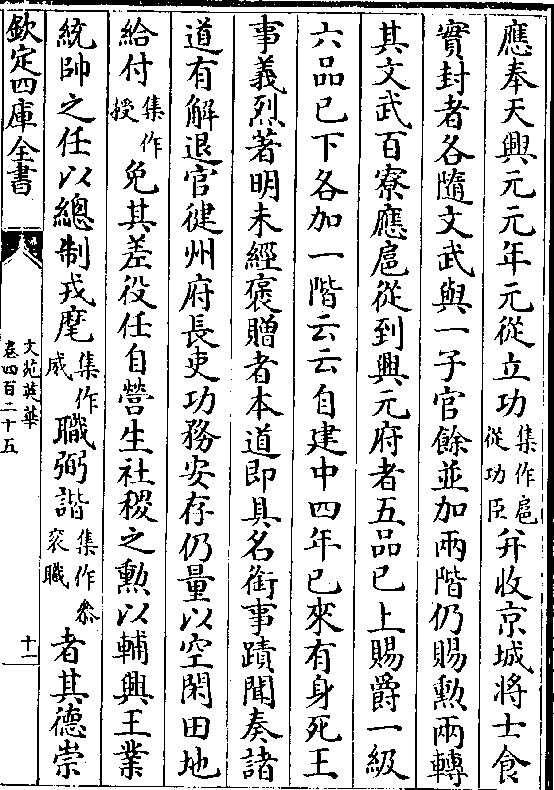 應奉天興元元年元從立功集作扈從功臣并收京城將士食
實封者各隨文武與一子官餘並加兩階仍賜勲兩轉
其文武百寮應扈從到興元府者五品已上賜爵一級
六品已下各加一階云云自建中四年已來有身死王
事義烈著明未經褒贈者本道即具名銜事蹟聞奏諸
道有解退官健州府長吏功務安存仍量以空閑田地
給付集作授免其差役任自營生社稷之勲以輔興王業
統帥之任以總制戎麾集作威職弼諧集作叅衮職者其德崇
欽定四庫全書
文苑英華
卷四百二十五
十一